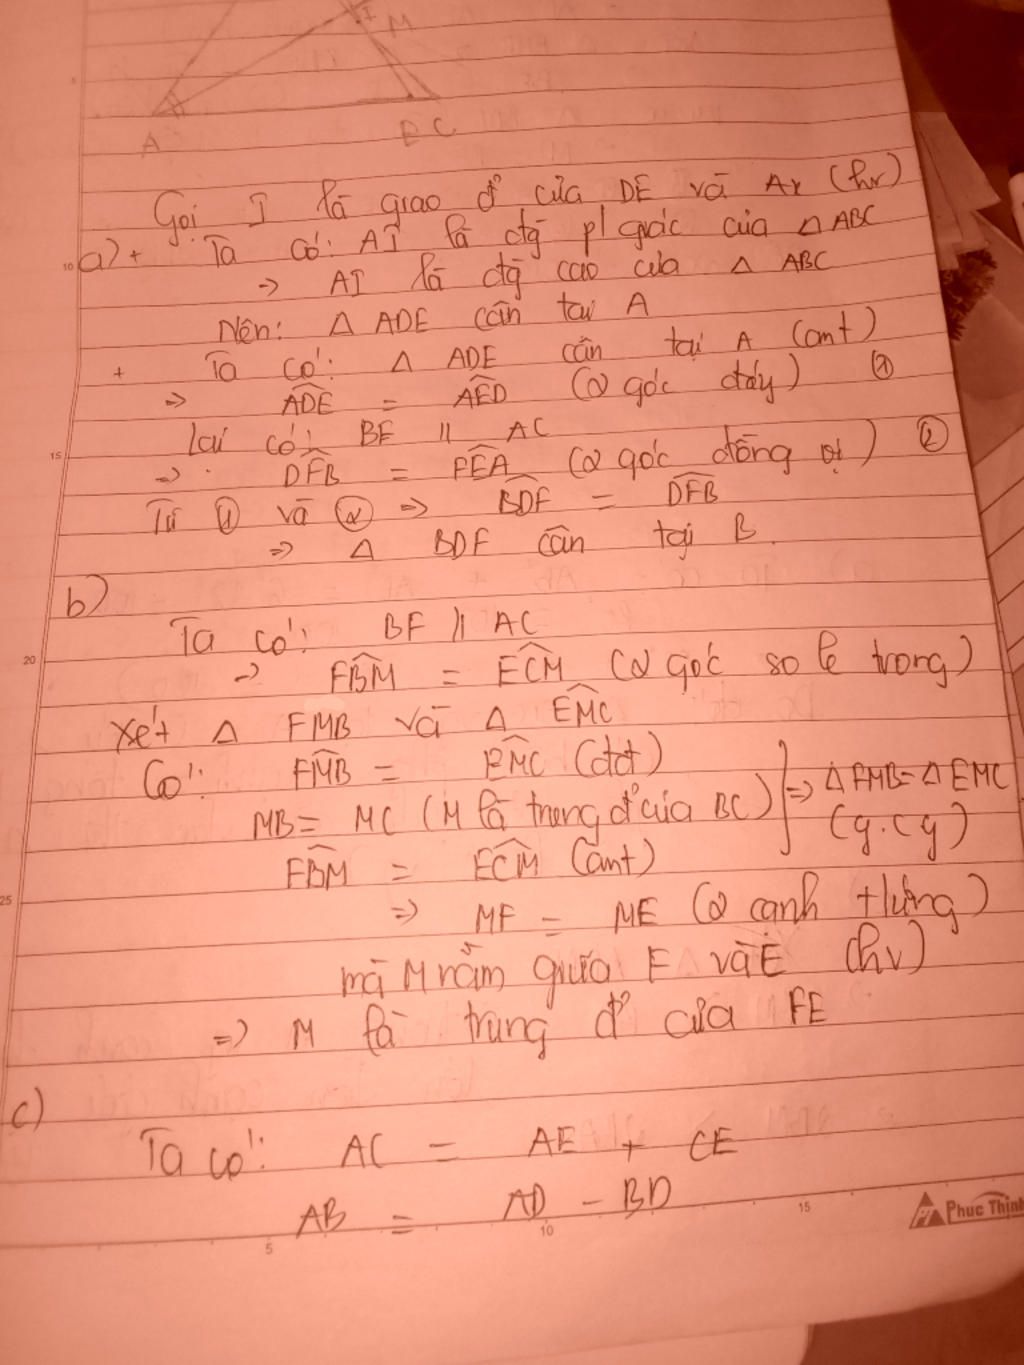 I M
A E C
Gọi I là giao đ' của DE và Ax (hv)
a) + Ta có: AI là đg pl giác của Δ ABC
=> AI là đg cao của Δ ABC
Nên: Δ ADE cân tại A
+ Ta có: Δ ADE cân tại A (cmt)
=> ADE = AED (2 góc đáy) ①
Lại có: BF // AC
=> DFB = FEA (2 góc đồng vị) ②
Từ ① và ② => BDF = DFB
=> Δ BDF cân tại B.
b)
Ta có: BF // AC
=> FBM = ECM (2 góc so le trong)
Xét Δ FMB và Δ EMC
Có: FMB = EMC (đđ)
MB = MC (M là trung đ' của BC) => Δ FMB = Δ EMC
FBM = ECM (cmt) (g.c.g)
=> MF = ME (2 cạnh tứng)
mà M nằm giữa F và E (hv)
=> M là trung đ' của FE
c)
Ta có: AC = AE + CE
AB = AD - BD
Phuc Thinh
10
15
20
25
5
10
15